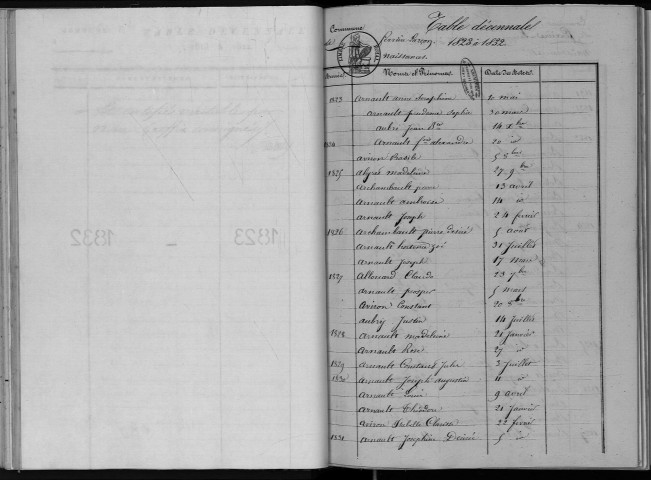 Commune
Table décennale
1823 à 1832
naissances
Années Noms et Prénoms Date des Actes
1823 Arnault anne Josephine 2 mai
Arnault prudence Sophie 30 mars
aubri jean Bte 14 Xbre
1824 Arnault fois alexandre 20 id
aviron Basile 5 8bre
1825 Algret madeleine 27 9bre
Archambault pierre 13 avril
Arnault ambroise 14 id
arnault Joseph 24 fevrier
1826 Archambault pierre desiré 5 août
Arnault zoé 31 juillet
Arnault joseph 17 mars
1827 Allouard Claude 23 7bre
arnault prosper 5 mars
Aviron Constant 20 8bre
aubry Justin 14 juillet
1828 Arnault madeleine 21 janvier
Arnault Rose 27 id
1829 Arnault Constant Jules 3 juillet
1830 Arnault Joseph augustin 11 id
Arnault Louis 9 avril
Arnault Théodore 21 Janvier
Aviron Clarisse 22 fevrier
1831 Arnault Joséphine Desiré 5 id
1832 — 1823